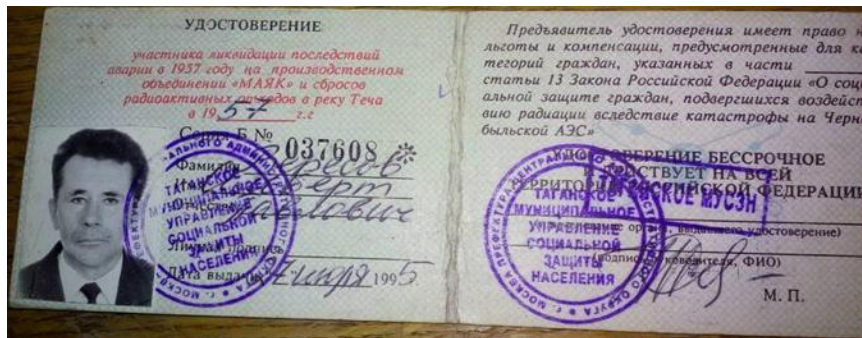 УДОСТОВЕРЕНИЕ
участника ликвидации последствий
аварии в 1957 году на производственном
объединении «МАЯК» и сбросов
радиоактивных отходов в реку Теча
в 1957 г.г
Серия Б № 037608 *
Фамилия
Имя
Отчество
Личная подпись
Дата выдачи 1995
ТАГАНСКОЕ
МУНИЦИПАЛЬНОЕ
УПРАВЛЕНИЕ
СОЦИАЛЬНОЙ
ЗАЩИТЫ
НАСЕЛЕНИЯ
Предъявитель удостоверения имеет право н
льготы и компенсации, предусмотренные для ка
тегорий граждан, указанных в части
статьи 13 Закона Российской Федерации «О соци
альной защите граждан, подвергшихся воздейст
вию радиации вследствие катастрофы на Черно
быльской АЭС»
УДОСТОВЕРЕНИЕ БЕССРОЧНОЕ
И ДЕЙСТВУЕТ НА ВСЕЙ
ТЕРРИТОРИИ РОССИЙСКОЙ ФЕДЕРАЦИИ
КОЕ МУСЗН
органа, выдавшего удостоверение)
(подпись руководителя, ФИО)
М. П.
ТАГАНСКОЕ
МУНИЦИПАЛЬНОЕ
УПРАВЛЕНИЕ
СОЦИАЛЬНОЙ
ЗАЩИТЫ
НАСЕЛЕНИЯ